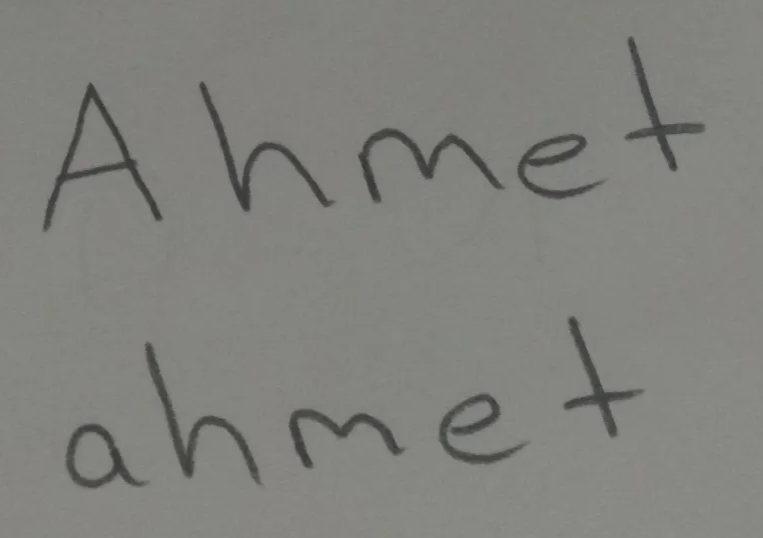 Ahmet
ahmet